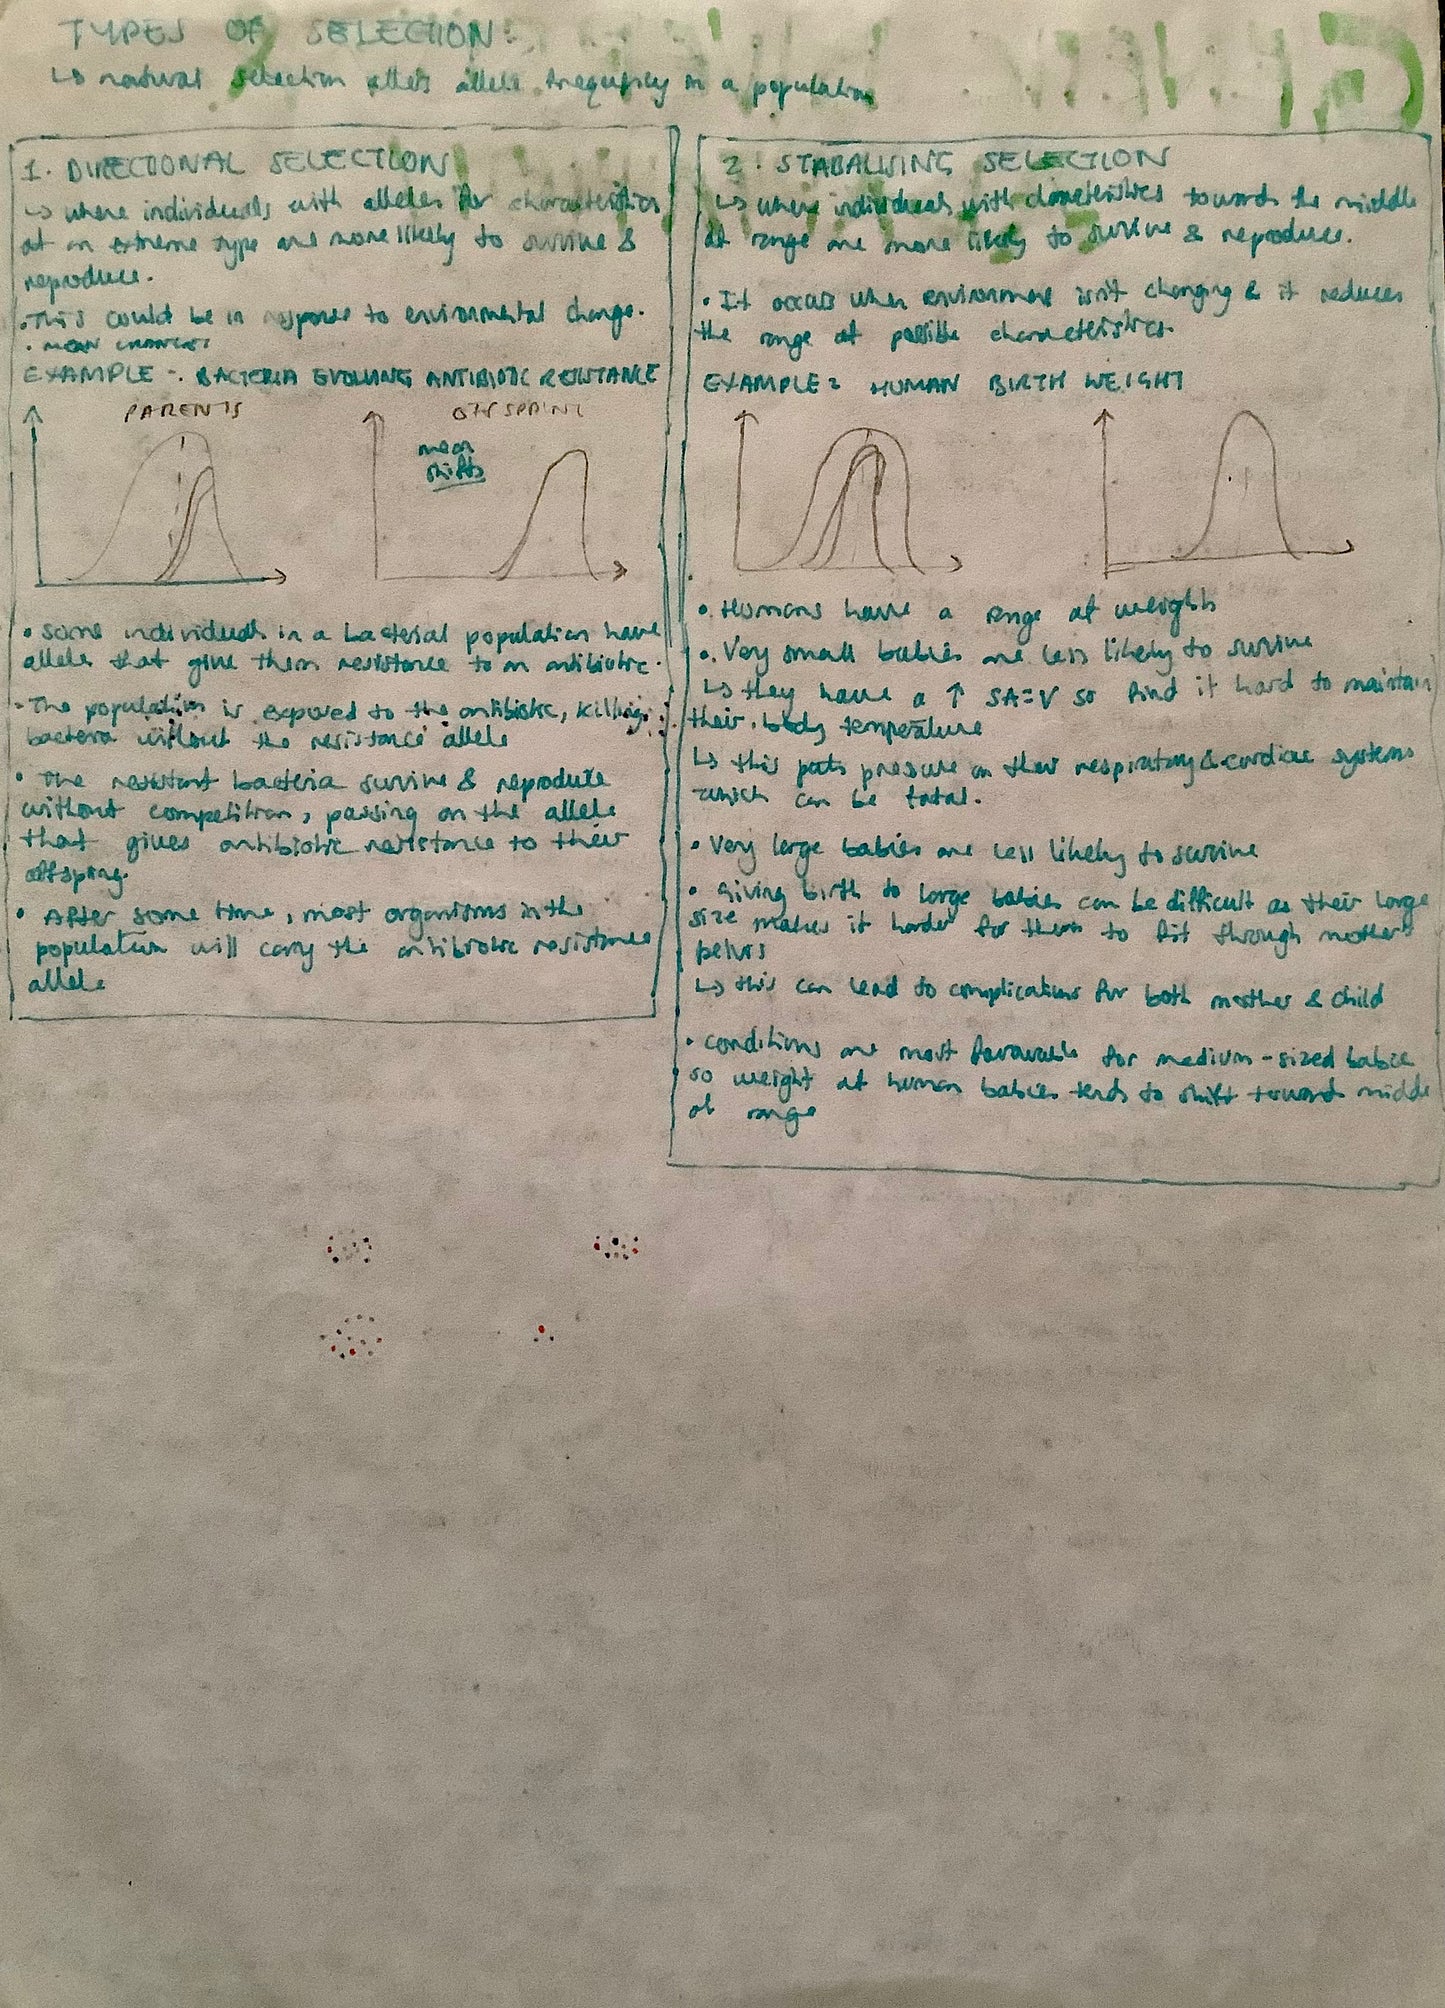 TYPES OF SELECTION:
↳ natural selection affects allele frequency in a population
1. DIRECTIONAL SELECTION
↳ where individuals with alleles for characteristics
of an extreme type are more likely to survive &
reproduce.
• This could be in response to environmental change.
• mean changes
EXAMPLE -. BACTERIA EVOLVING ANTIBIOTIC RESISTANCE
PARENTS
OFFSPRING
mean
shifts
• some individuals in a bacterial population have
alleles that give them resistance to an antibiotic.
- The population is exposed to the antibiotic, killing
bacteria without the resistance allele
• The resistant bacteria survive & reproduce
without competition, passing on the allele
that gives antibiotic resistance to their
offspring.
• After some time, most organisms in the
population will carry the antibiotic resistance
allele
2. STABALISING SELECTION
↳ where individuals with characteristics towards the middle
of range are more likely to survive & reproduce.
• It occurs when environment isn't changing & it reduces
the range of possible characteristics.
EXAMPLE = HUMAN BIRTH WEIGHT
• Humans have a range of weights
• Very small babies are less likely to survive
↳ they have a ↑ SA:V so find it hard to maintain
their body temperature
↳ this puts pressure on their respiratory & cardiac systems
which can be fatal.
• Very large babies are less likely to survive
• Giving birth to large babies can be difficult as their large
size makes it harder for them to fit through mother's
pelvis
↳ this can lead to complications for both mother & child
• conditions are most favourable for medium-sized babies
so weight of human babies tends to shift towards middle
of range